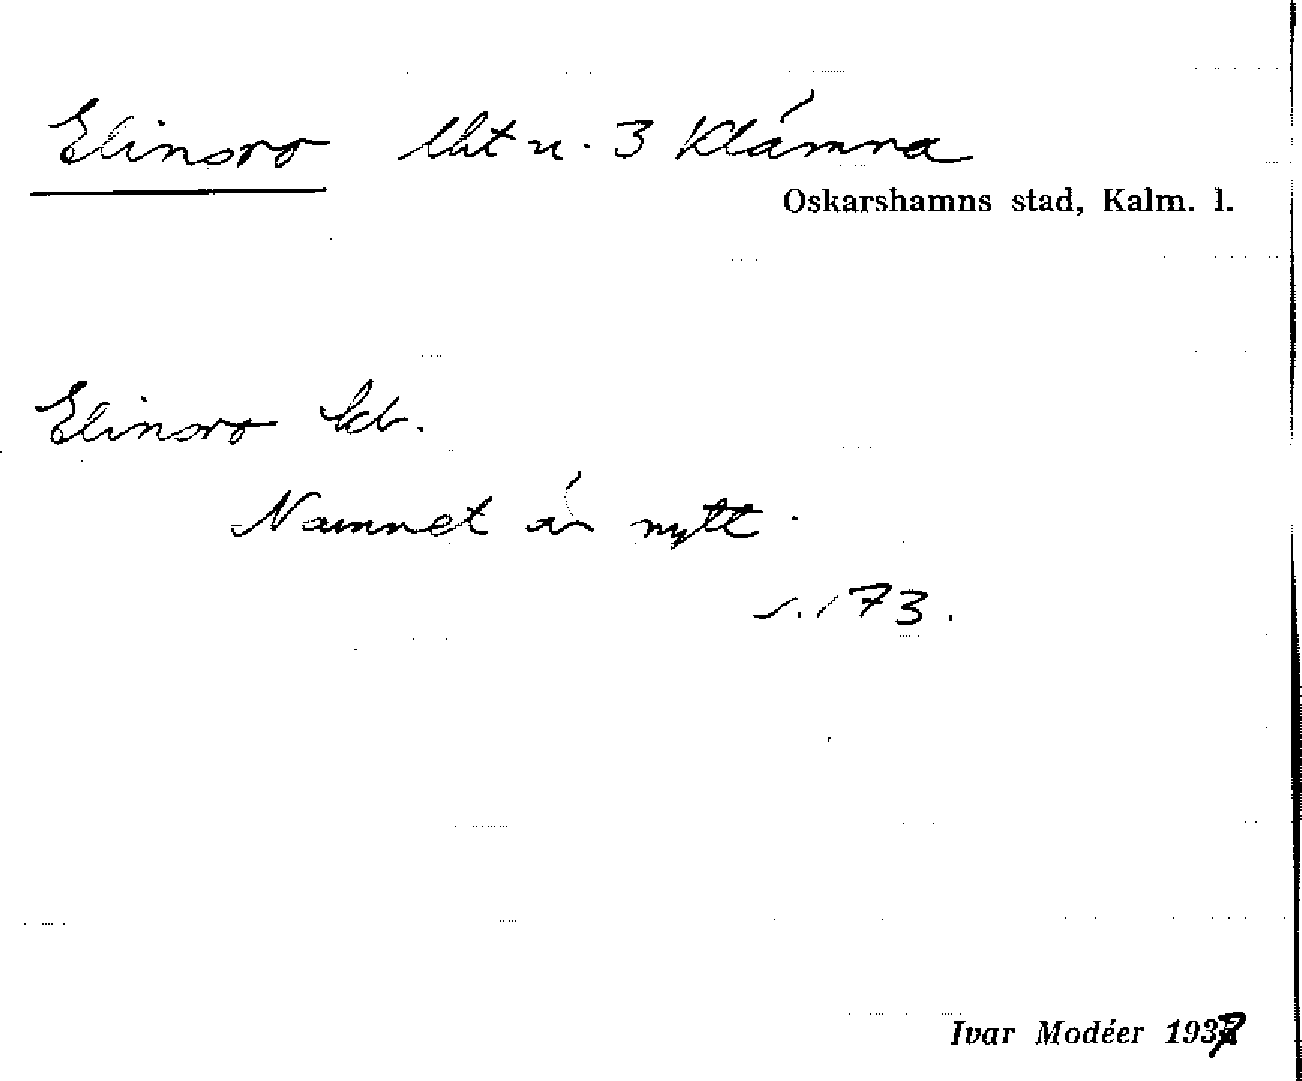 Elinsro lht u. 3 Klämna
Oskarshamns stad, Kalm. l.
Elinsro lht.
Namnet är nytt.
s. 173.
Ivar Modéer 1937